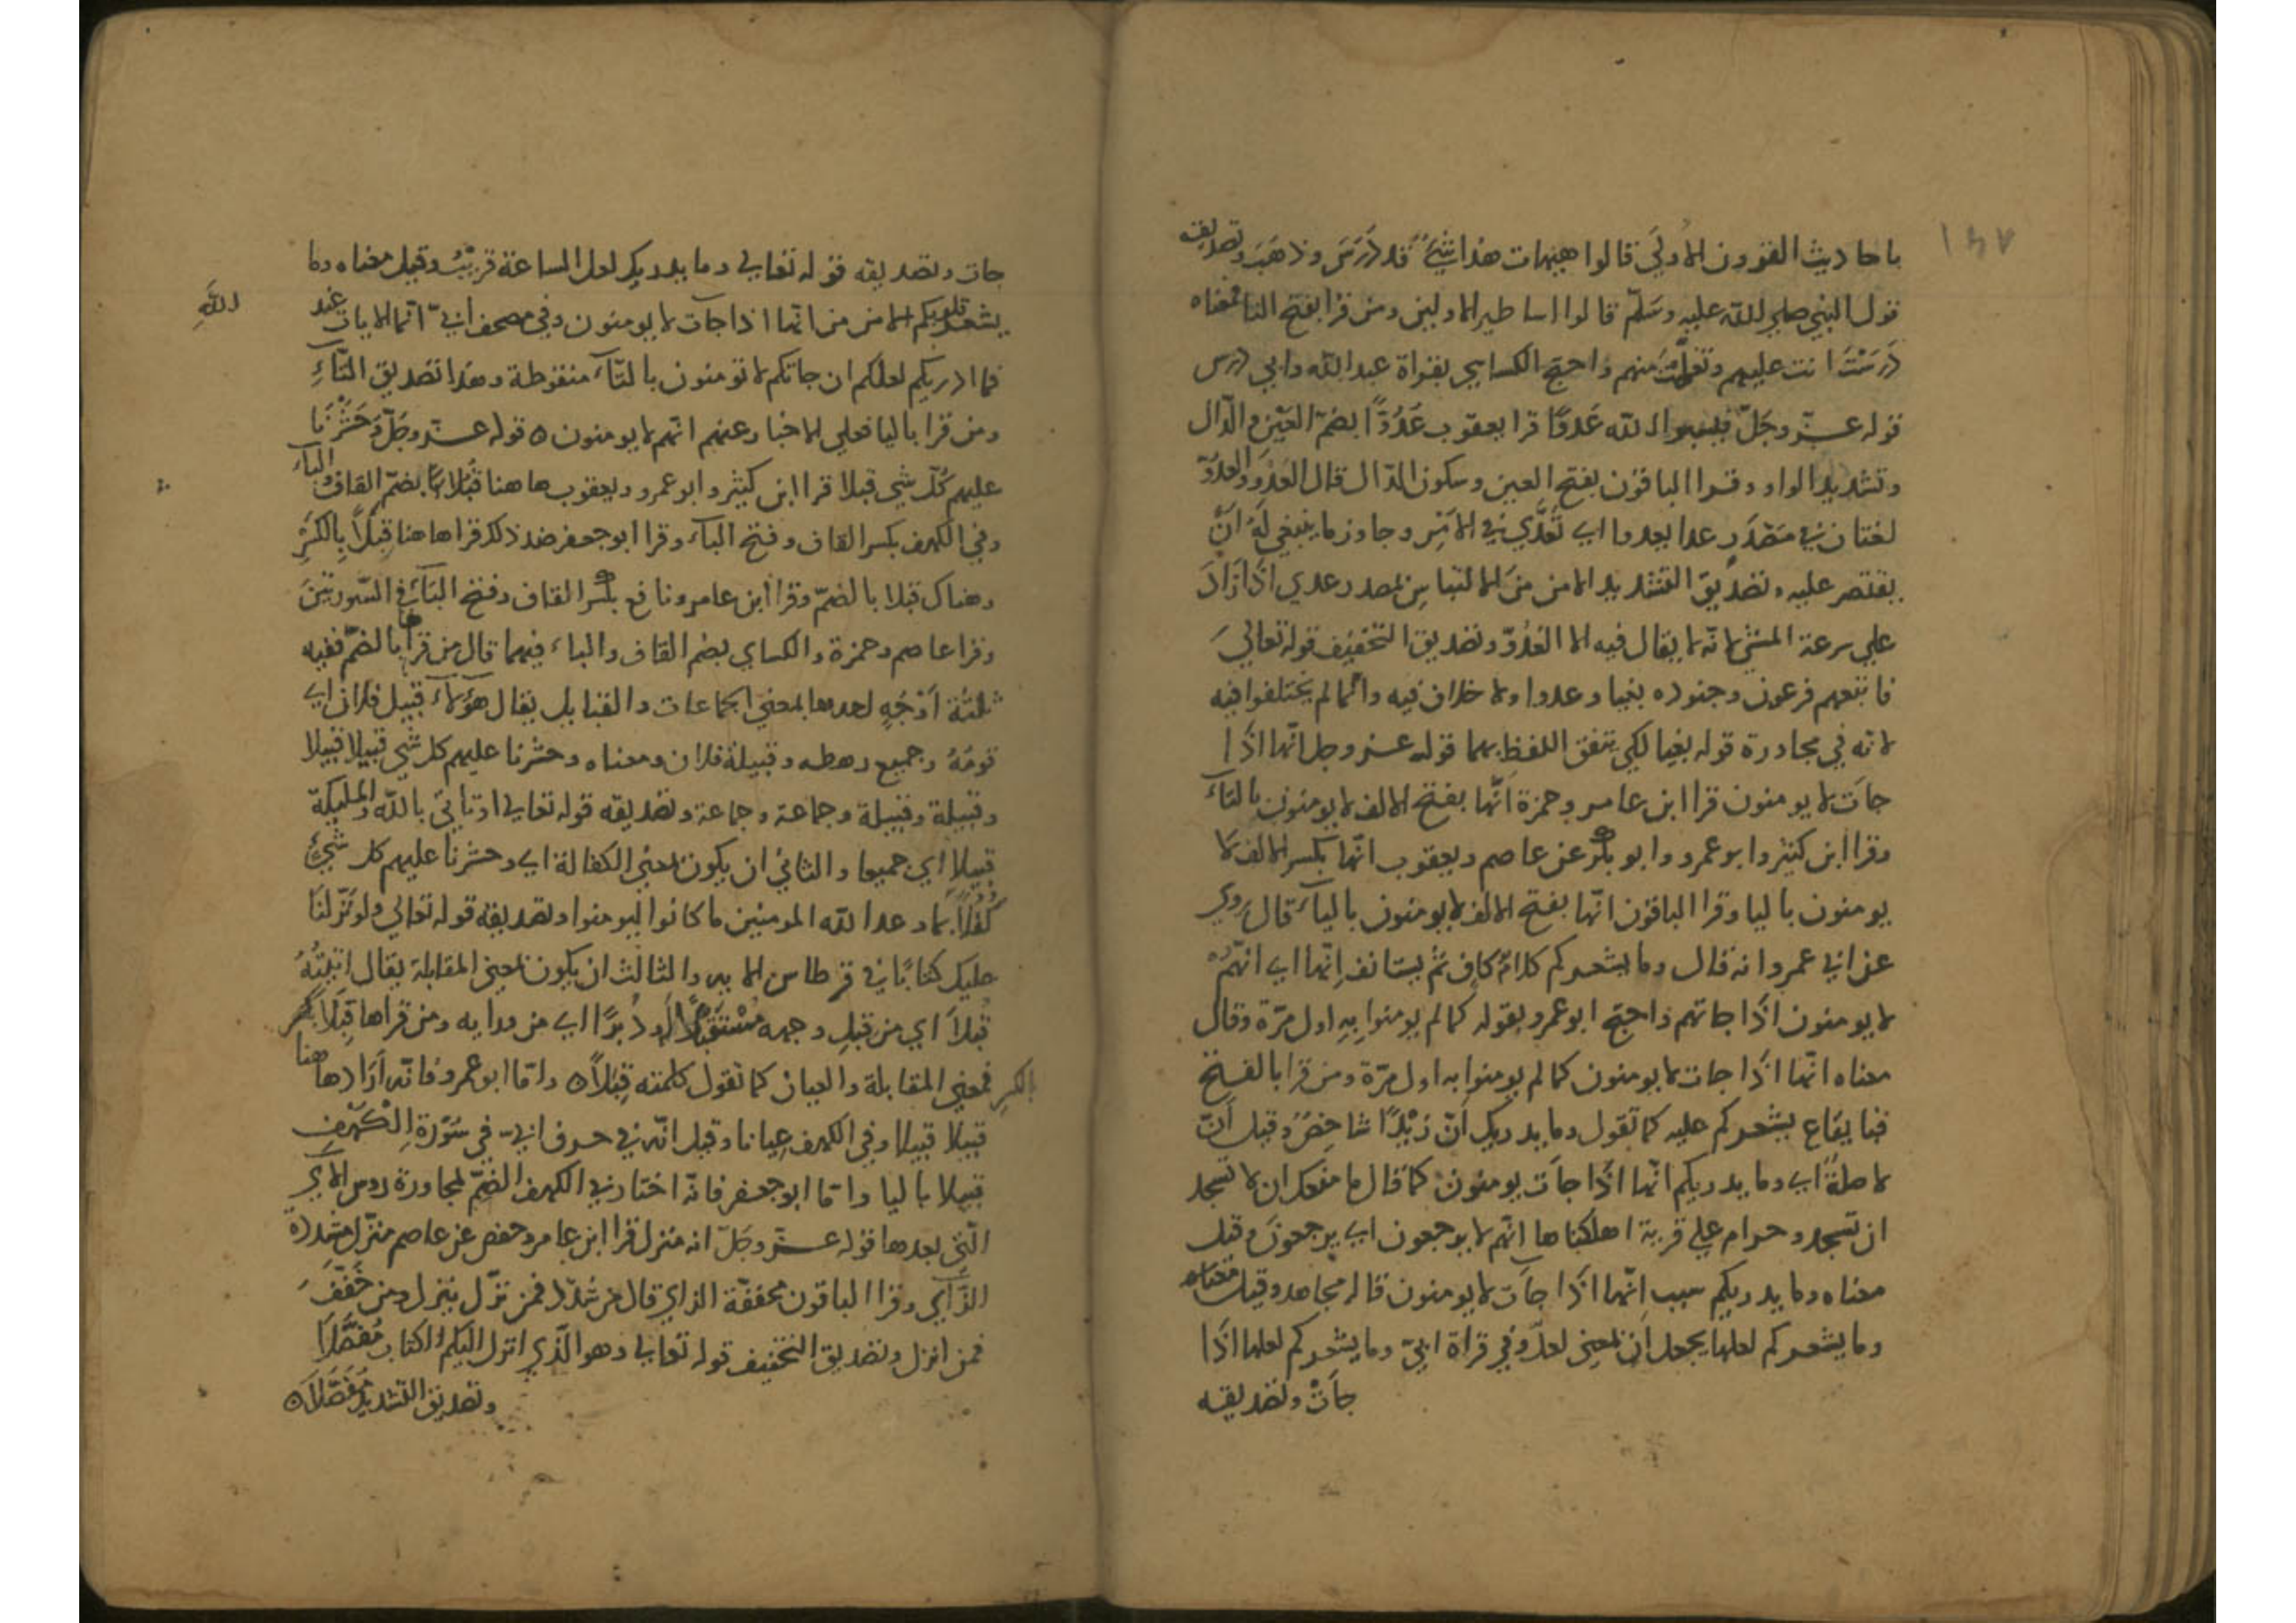 ١٤٧
باحاديث القرون الأولى قالوا هيهات هذا شئ قد دَرَسَ وذهب وتصديقه
قول النبي صلى الله عليه وسلم قالوا اساطير الاولين ومن قرا بفتح التا فمعناه
دَرَسْتَ انت عليهم وتعلمت منهم واحتج الكسايي بقراة عبد الله وابي درس
قوله عز وجل فيسبوا الله عَدوًا قرا يعقوب عُدُوًّا بضم العين والدال
وتشديد الواو وقرا الباقون بفتح العين وسكون الدال قال العَدْو والعدُوّ
لغتان في مصدر عدا يعدوا اي تعدّي في الامر وجاوز ما ينبغي له ان
يقتصر عليه وتصديق التشديد الامن من الالتباس بمصدر عدي اذا زاد
على سرعة المشي لانه لا يقال فيه الا العُدُوّ وتصديق التخفيف قوله تعالى
فاتبعهم فرعون وجنوده بغيا وعدوا ولا خلاف فيه وانما لم يختلفوا فيه
لانه في مجاورة قوله بغيا لكي يتفق اللفظ بهما قوله عز وجل انها اذا
جات لا يومنون قرا ابن عامر وحمزة انَّها بفتح الالف لا يومنون بالتاء
وقرا ابن كثير وابو عمرو وابو بكر عن عاصم ويعقوب انها بكسر الالف لا
يومنون باليا وقرا الباقون انها بفتح الالف لا يومنون بالياء قال روي
عن ابي عمرو انه قال وما يشعركم كلام كاف ثم يستانف اِنها اي انهم
لا يومنون اذا جاتهم واحتج ابو عمرو بقوله كما لم يومنوا به اول مرة وقال
معناه انها اذا جات لا يومنون كما لم يومنوا به اول مرة ومن قرا بالفتح
فبايقاع يشعركم عليه كما تقول وما يدريك أنّ زيدًا شاخص وقيل انّ
لا صلةً اي وما يدريكم انها اذا جات يومنون كما قال ما منعك ان لا تسجد
ان تسجد وحرام على قرية اهلكناها انهم لا يرجعون اي يرجعون وقيل
معناه وما يدريكم سبب اِنها اذا جات لا يومنون قاله مجاهد وقيل معناه
وما يشعركم لعلها يجعل ان بمعنى لعل وفي قراة ابيّ وما يشعركم لعلها اذا
جاَتْ وتصديقه
جات وتصديقه قوله تعالى وما يدريك لعل الساعة قريب وقيل معناه وما
يشعر قلوبكم الامن من انها اذا جآت لا يومنون وفي مصحف ابيّ انما الايات عند
الله
فما ادريكم لعلكم ان جاتكم لا تومنون بالتاء منقوطة وهذا تصديق التّاءِ
ومن قرا باليا فعلى الاخبار عنهم انهم لا يومنون ه قوله عز وجل وحَشَرْنَا
عليهم كُلَّ شي قبلا قرا ابن كثير وابو عمرو ويعقوب هاهنا قُبُلا بضم القاف والباء
وفي الكهف بكسر القاف وفتح الباء وقرا ابو جعفر ضد ذلك قرا هاهنا قِبَلًا بِالكَسْرِ
وهناك قبلا بالضمّ وقرا ابن عامر ونافع بكسر القاف وفتح البَآءِ في السّورتينَ
وقرا عاصم وحمزة والكساي بضم القاف والباء فيهما قال من قراها بالضمّ ففيه
ثلثة اَوْجُهٍ احدها بمعنى الجماعات والقبايل يقال هؤلاء قبيل فلان اي
قومُهُ وجميع رهطه وقبيلة فلان ومعناه وحشرنا عليهم كل شي قبيلا قبيلا
وقبيلة وقبيلة وجماعة وجماعة وتصديقه قوله تعالى او تاتي بالله والمليكة
قبيلا اي جميعا والثاني ان يكون بمعنى الكفالة اي وحشرنا عليهم كل شيئٍ
كُفُلًا بما وعد الله المومنين ما كانوا ليومنوا وتصديقه قوله تعالى ولو نَزّلنَا
عليك كتابًا في قرطاس الايه والثالث ان يكون بمعنى المقابلة يقال اتيتُهُ
قُبُلًا اي من قبل وجهه مُسْتَقْبِلًا ودُبُرًا اي من ورايه ومن قراها قِبَلًا بكسر
بالكسر فمعنى المقابلة والعيان كما تقول كلمته قِبَلًا ه واما ابو عمرو فانه اَرَادَ هاهنا
قبيلا قبيلا وفي الكهف عِيانا وقيل انّه في حرف ابيّ في سُورة الكَهْفِ
قبيلا باليا واما ابو جعفر فانه اختار في الكهف الضمّ لمجاورة روس الاي
الّتي بعدها قوله عز وجل انه منزل قرا ابن عامر وحفص عن عاصم منزّل مشددة
الزّاي وقرا الباقون مخففة الزاي قال من شدّد فمن نزّل ينزل ومن خَفّفَ
فمن انزل وتصديق التخفيف قوله تعالى وهو الّذي انزل اليكم الكتاب مُفَصَّلًا
وتصديق التشديد مُفَصَّلًا ه